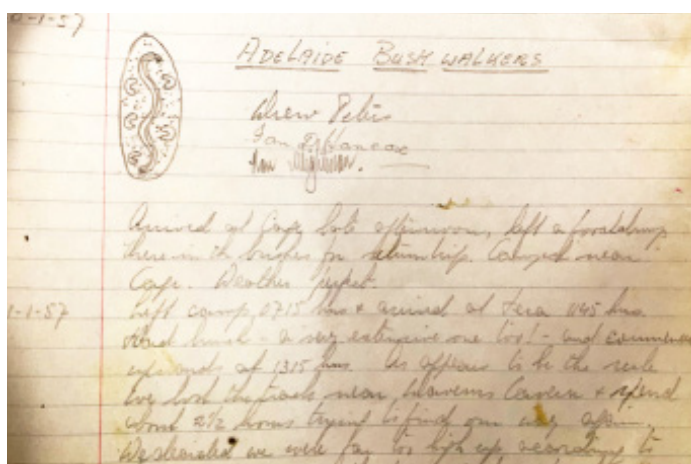 -1-57
ADELAIDE BUSHWALKERS
Drew Peters
Ian Hancox
Arrived at Cage late afternoon, left a food dump
there in the bushes for return trip. Camped near
Cage. Weather perfect.
1-1-57 Left camp 0715 hrs & arrived at 1145 hrs.
Had lunch - a very extensive one too! - and commenced
upwards at 1315 hrs. As appears to be the rule
we lost the track near Cavern & spend
about 2½ hours trying to find our way again.
We decided we were far too high up according to